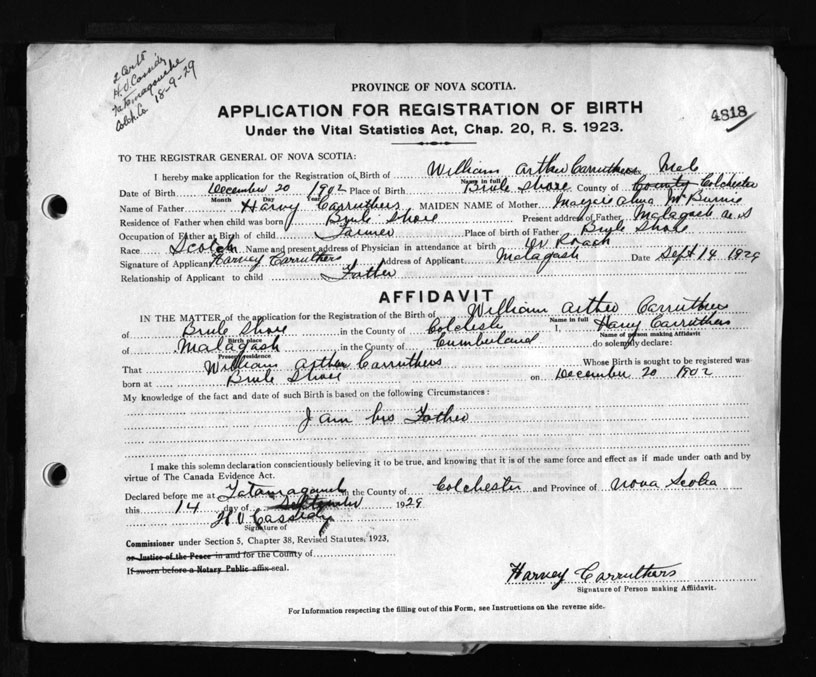 2 Certs
H.V. Cassidy
Tatamagouche
Colch. Co. 18-9-29
PROVINCE OF NOVA SCOTIA.
APPLICATION FOR REGISTRATION OF BIRTH
4818
Under the Vital Statistics Act, Chap. 20, R. S. 1923.
TO THE REGISTRAR GENERAL OF NOVA SCOTIA:
I hereby make application for the Registration of Birth of William Arthur Carruthers Sex Male
Name in full
Date of Birth December 20 1902 Place of Birth Brule Shore County of County Colchester
Month Day Year
Name of Father Harvy Carruthers MAIDEN NAME of Mother
Residence of Father when child was born Brule Shore Present address of Father Malagash N. S
Occupation of Father at Birth of child Farmer Place of birth of Father Brule Shore
Race Scotch Name and present address of Physician in attendance at birth Dr Roach
Signature of Applicant Harvey Carruthers Address of Applicant Malagash Date Sept 14 1929
Relationship of Applicant to child Father
AFFIDAVIT
IN THE MATTER of the application for the Registration of the Birth of William Arthur Carruthers
Name in full
of Brule Shore in the County of Colchester I, Harvy Carruthers
Birth place Name of person making Affidavit
of Malagash in the County of Cumberland do solemnly declare:
Present residence
That William Arthur Carruthers Whose Birth is sought to be registered was
born at Brule Shore on December 20 1902
My knowledge of the fact and date of such Birth is based on the following Circumstances:
I am his Father
I make this solemn declaration conscientiously believing it to be true, and knowing that it is of the same force and effect as if made under oath and by
virtue of The Canada Evidence Act.
Declared before me at Tatamagouch in the County of Colchester and Province of Nova Scotia
this 14 day of September 1929
H.V. Cassidy
Signature of
Commissioner under Section 5, Chapter 38, Revised Statutes, 1923,
or Justice of the Peace in and for the County of
If sworn before a Notary Public affix seal.
Harvey Carruthers
Signature of Person making Affidavit.
For Information respecting the filling out of this Form, see Instructions on the reverse side.